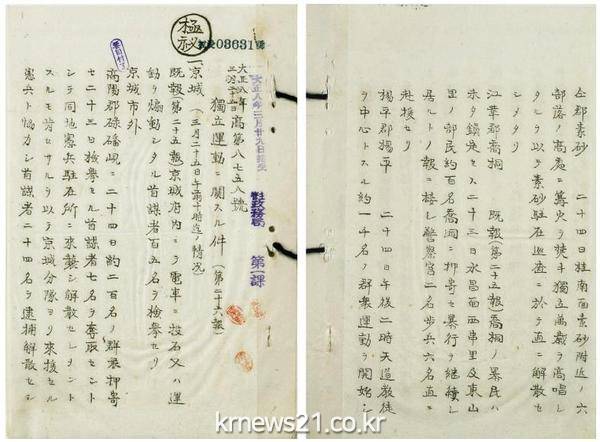 極秘
03631號
大正八年三月廿九日接受
政務局 第一課
大正八年三月二十五日 高第八七五八號
獨立運動ニ關スル件(第二十六報)
一、京城(三月二十五日午前十時迄ノ情況)
既報第二十五報京城府内ニテ電車ニ投石又ハ運
動ヲ煽動シタル首謀者百五名ヲ檢擧セリ
京城市外
高陽郡碌磻峴ニ二十四日約二百名ノ群衆押寄
セ二十三日檢擧セル首謀者七名ヲ奪取セント
シテ同地憲兵駐在所ニ來襲シ解散セシメント
スルモ肯セサルヲ以テ京城分隊ヨリ來援セル
憲兵ト協力シ首謀者二十四名ヲ逮捕解散セシ
仝郡素砂 二十四日桂南面素砂附近ノ六
部落ノ高處ニ篝火ヲ焚キ獨立萬歳ヲ高唱シ
タルヲ以テ素砂駐在巡査ニ於テ直ニ解散セ
シメタリ
江華郡喬桐 既報(第二十五報)喬桐ノ暴民ハ
未タ鎮定セス二十三日永昌面西串里及東山
里ノ部民約百名喬桐ニ押寄セ暴行ヲ繼續シ
居ルトノ報ニ接シ警察官二名歩兵六名直ニ
赴援セリ
楊平郡楊平 二十四日午後二時天道教徒
ヲ中心トスル約一千名ノ群衆運動ヲ開始シ
krnews21.co.kr